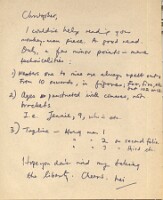 Christopher,
I couldn't help reading your
monkey-man piece. A good read.
Only a few minor points - mere
technicalities:
1) Numbers one to nine are always spelt out.
From 10 onwards, in figures.
2) Ages are punctuated with commas, not
brackets
I.e. Jennie, 9, which etc.
3) Tagline - Kong man 1
" 2 on second folio
" 3 third etc.
I hope you don't mind my taking
the liberty. Cheers.